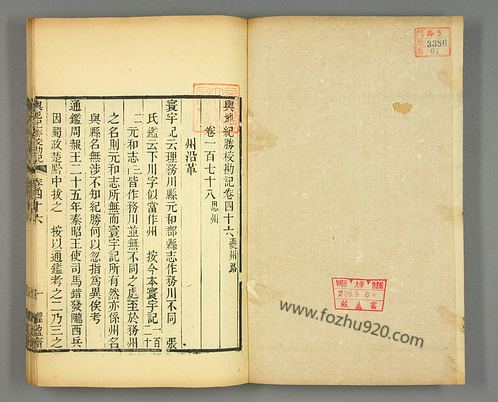 輿地紀勝校勘記卷四十六 夔州路
卷一百七十八 思州
州沿革
寰宇記云理務川縣元和郡縣志作務川不同 張
氏鑑云下川字似當作州 按今本寰宇記一百二十
二元和志三十皆作務川並無不同之處至於務州
之名則元和志所無而寰宇記所有然亦係州名
與縣名無涉不知紀勝何以忽指為異俟考
通鑑周赧王二十五年秦昭王使司馬錯發隴西兵
因蜀攻楚黔中拔之 按以通鑑考之二乃三之
輿地紀勝校勘記
卷四十六
3386
61
28.9.8
www.fozhu920.com